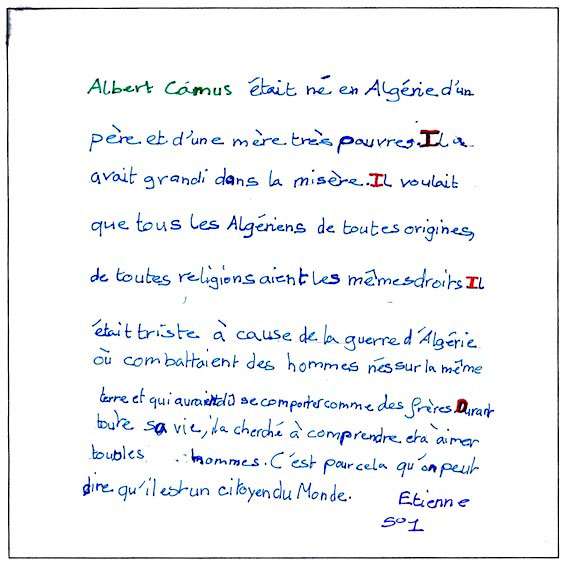 Albert Camus était né en Algérie d'un
père et d'une mère très pauvres. Il a
avait grandi dans la misère. Il voulait
que tous les Algériens de toutes origines,
de toutes religions aient les mêmes droits Il
était triste à cause de la guerre d'Algérie
où combattaient des hommes nés sur la même
terre et qui auraient dû se comporter comme des frères Durant
toute sa vie, il a cherché à comprendre et à aimer
tous les hommes. C'est pour cela qu'on peut
dire qu'il est un citoyen du Monde.
Etienne
501